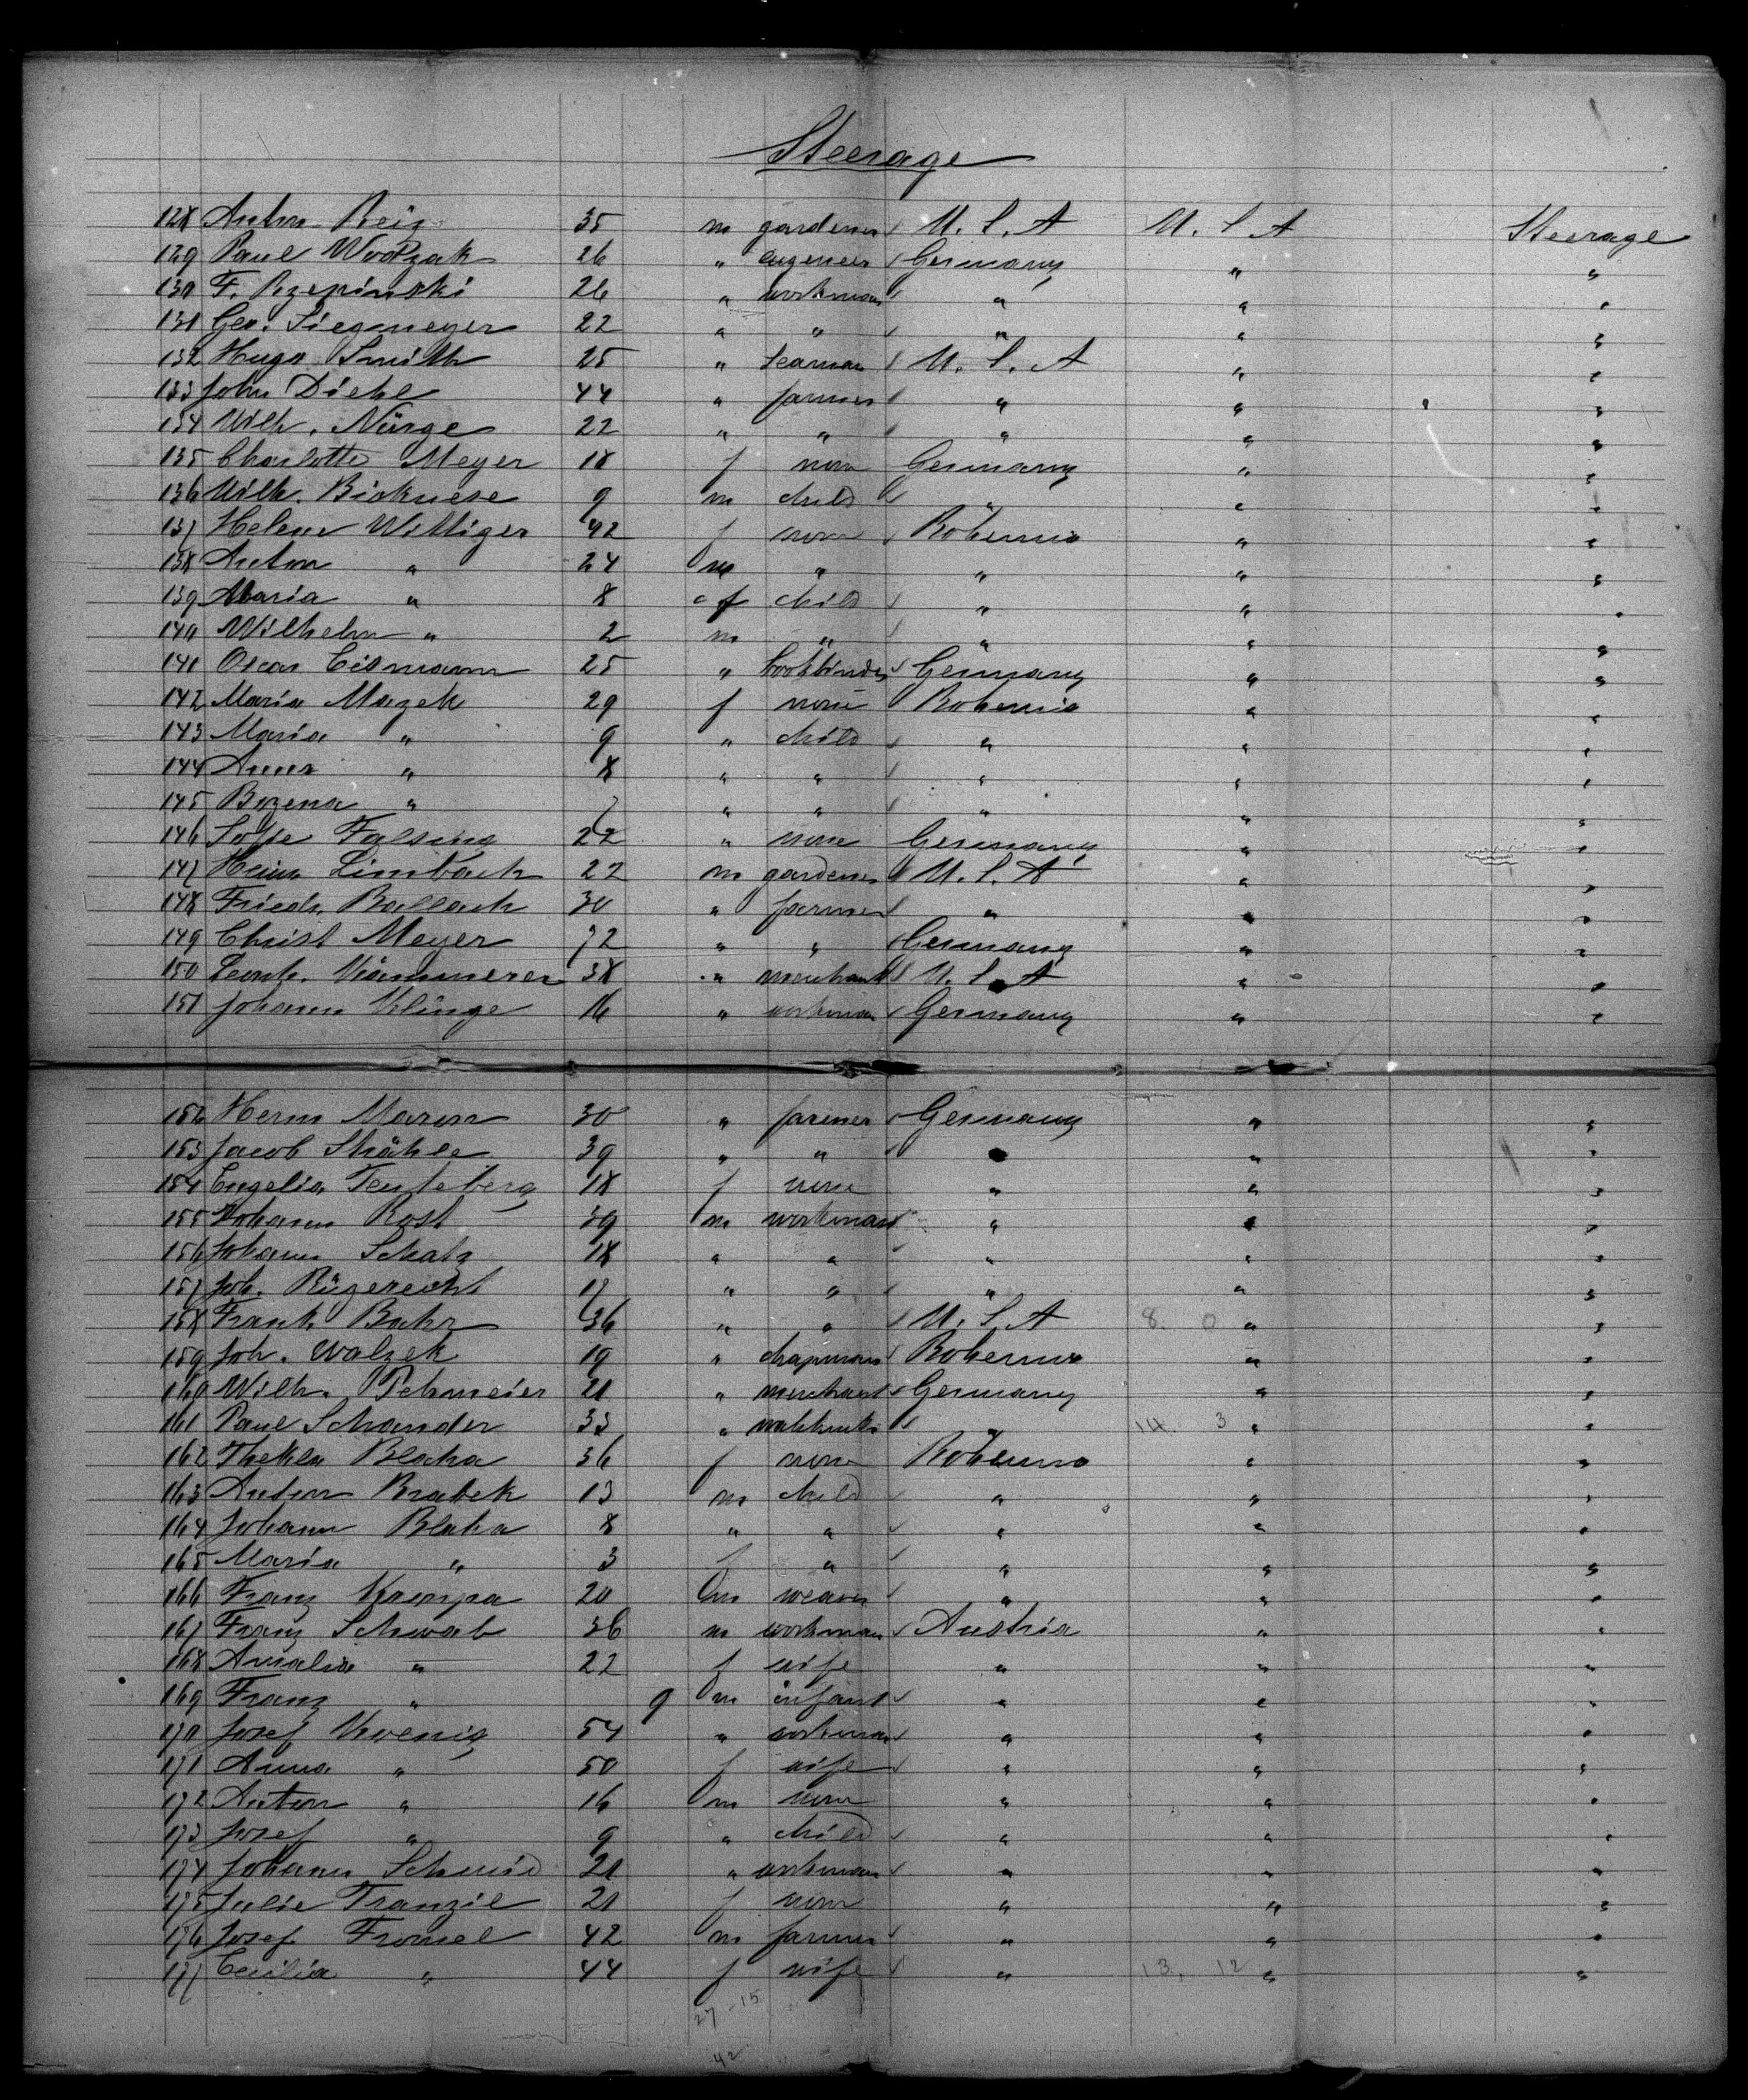 Steerage
128 Anton Reiz 35 m gardener U. S. A U. S. A Steerage
129 Paul Wodzak 26 " engeneer Germany " "
130 F. Rzepinski 26 " workman " " "
131 Geo. Siegmeyer 22 " " " " "
132 Hugo Smith 25 " seaman U. S. A " "
133 John Diehl 44 " farmer " " "
134 Wilh. Nürge 22 " " " " "
135 Charlotte Meyer 18 f none Germany " "
136 Wilh. Bicknese 9 m child " " "
137 Helene Wittiger 42 f none Bohemia " "
138 Anton " 24 m " " " "
139 Maria " 8 f child " " "
140 Wilhelm " 2 m " " " "
141 Oscar Eismann 25 " bookbinder Germany " "
142 Maria Mazek 29 f none Bohemia " "
143 Maria " 9 " child " " "
144 Anna " 8 " " " " "
145 Bozena " 7 " " " " "
146 Sofie Falsing 22 " none Germany " "
147 Heinr Limbach 22 m gardener U. S. A " "
148 Friedr. Ballach 30 " farmer " " "
149 Christ Meyer 72 " " Germany " "
150 Leonh. Kämmerer 38 " merchant U. S. A " "
151 Johann Klinge 16 " workman Germany " "
152 Herm Maron 30 " farmer Germany " "
153 Jacob Stähle 39 " " " " "
154 Engelia Tenteberg 18 f none " " "
155 Johann Rost 39 m workman " " "
156 Johann Schatz 18 " " " " "
157 Joh. Rügerecht 17 " " " " "
158 Frank Bahr 36 " " U. S. A 8. 0 " "
159 Joh. Walzek 19 " chapman Bohemia " "
160 Wilh. Pehmeier 21 " merchant Germany " "
161 Paul Schander 33 " " 14. 3 " "
162 Thekla Blaha 36 f none Bohemia " "
163 Anton Brabek 13 m child " " "
164 Johann Blaha 8 " " " " "
165 Maria " 3 f " " " "
166 Franz Krompa 20 m weaver " " "
167 Franz Schwab 36 m workman Austria " "
168 Amalia " 22 f wife " " "
169 Franz " 9 m infant " " "
170 Josef Koenig 54 " workman " " "
171 Anna " 50 f wife " " "
172 Anton " 16 m none " " "
173 Josef " 9 " child " " "
174 Johann Schmid 21 " workman " " "
175 Julie Tranzil 21 f none " " "
176 Josef Fromel 42 m farmer " " "
177 Cecilia " 44 f wife " 13. 12 " "
27 - 15
42